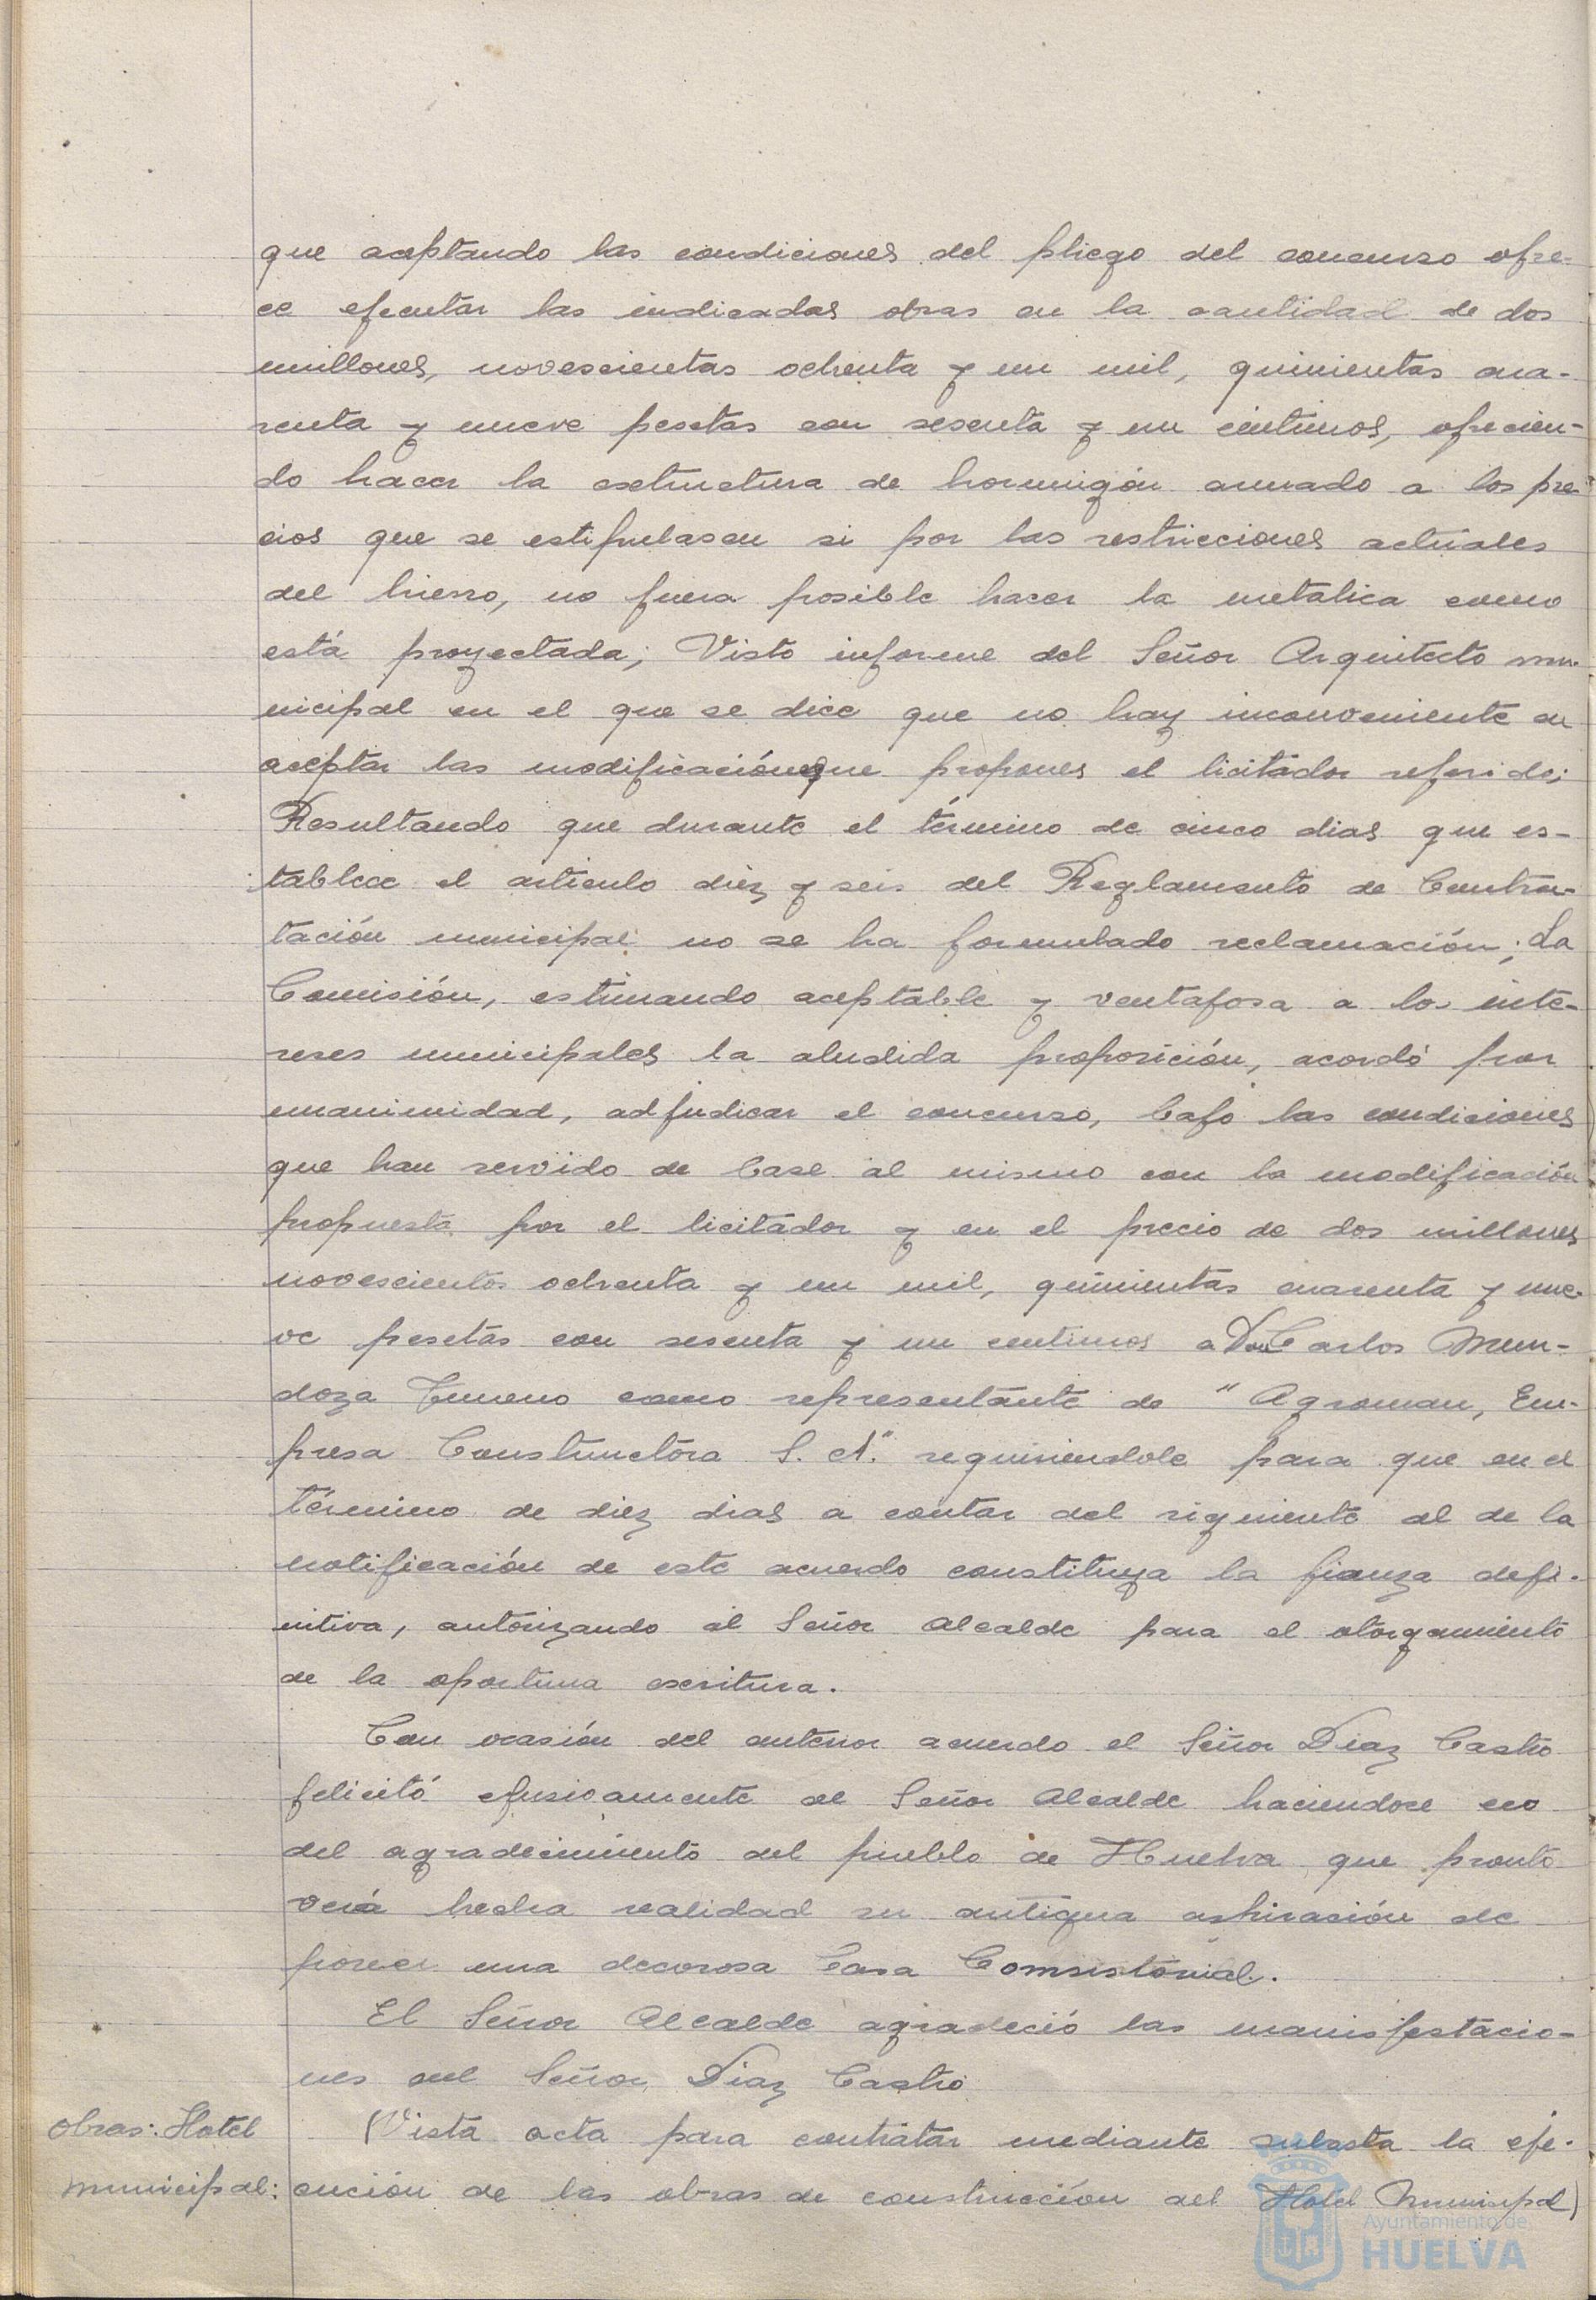 que aceptando las condiciones del pliego del concurso ofre-
ce ejecutar las indicadas obras en la cantidad de dos
millones, novescientas ochenta y un mil, quinientas cua-
renta y nueve pesetas con sesenta y un céntimos, ofrecien-
do hacer la esetructura de hormigón armado a los pre-
cios que se estipulasen si por las restricciones actuales
del hierro, no fuera posible hacer la metalica como
está proyectada; Visto informe del Señor Arquitecto mu-
nicipal en el que se dice que no hay inconveniente en
aceptar las modificaciónes que propones el licitador referido;
Resultando que durante el término de cinco dias que es-
tablece el articulo diez y seis del Reglamento de Contra-
tación municipal no se ha formulado reclamación; La
Comisión, estimando aceptable y ventajosa a los inte-
reses municipales la aludida proposición, acordó por
unanimidad, adjudicar el concurso, bajo las condiciones
que han servido de base al mismo con la modificación
propuesta por el licitador y en el precio de dos millones
novescientos ochenta y un mil, quinientas cuarenta y nue-
ve pesetas con sesenta y un centimos a Don Carlos Men-
doza Jimeno como representante de "Agroman, Em-
presa Constructora S. A." requiriendole para que en el
término de diez dias a contar del siguiente al de la
notificación de este acuerdo constituya la fianza defi-
nitiva, autorizando al Señor Alcalde para el otorgamiento
de la oportuna escritura.
Con ocasión del anterior acuerdo el Señor Diaz Castro
felicitó efusivamente al Señor Alcalde haciendose eco
del agradecimiento del pueblo de Huelva que pronto
verá hecha realidad su antigua aspiración de
poseer una decorosa Casa Comsistorial.
El Señor Alcalde agradeció las manisfestacio-
nes del Señor Diaz Castro
Obras: Hotel
municipal:
(Vista acta para contratar mediante subasta la eje-
cución de las obras de construcción del Hotel Municipal)
Ayuntamiento de
HUELVA